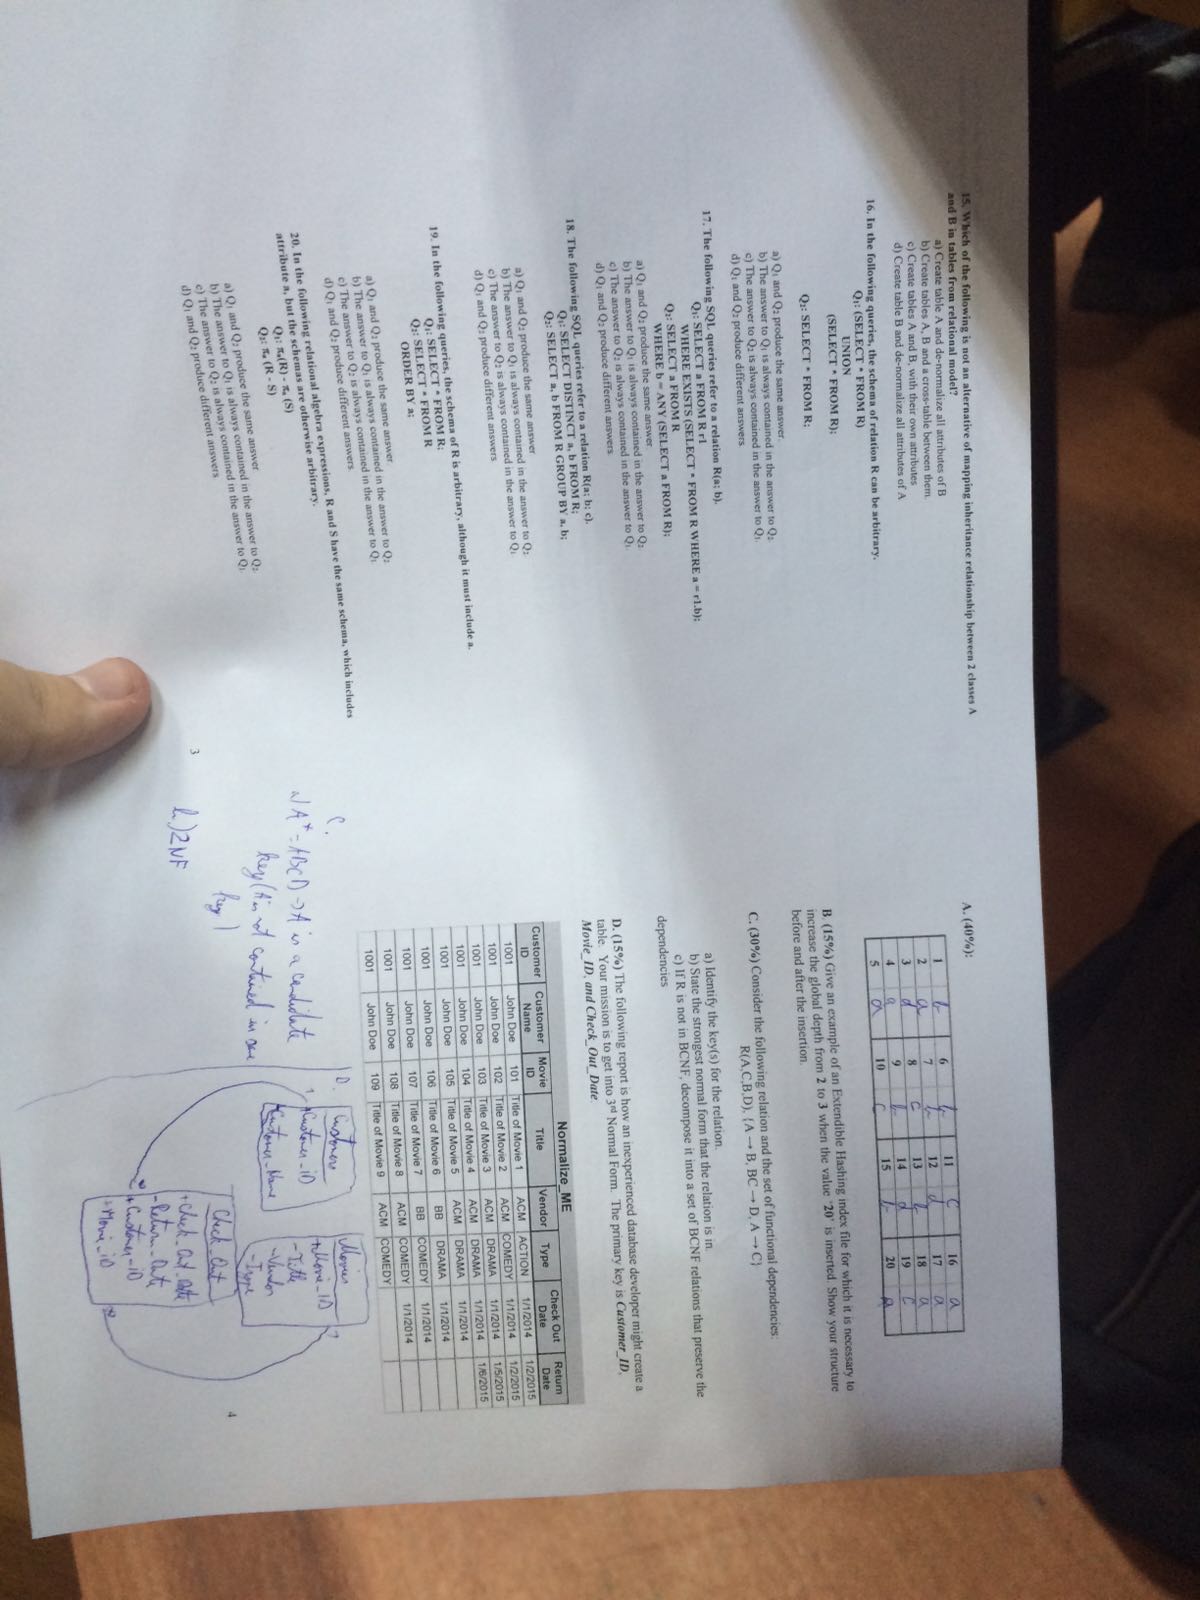 15. Which of the following is not an alternative of mapping inheritance relationship between 2 classes A
and B in tables from relational model?
a) Create table A and de-normalize all attributes of B
b) Create tables A, B and a cross-table between them.
c) Create tables A and B, with their own attributes
d) Create table B and de-normalize all attributes of A
16. In the following queries, the schema of relation R can be arbitrary.
Q1: (SELECT * FROM R)
UNION
(SELECT * FROM R);
Q2: SELECT * FROM R;
a) Q1 and Q2 produce the same answer.
b) The answer to Q1 is always contained in the answer to Q2.
c) The answer to Q2 is always contained in the answer to Q1.
d) Q1 and Q2 produce different answers.
17. The following SQL queries refer to a relation R(a; b).
Q1: SELECT a FROM R r1
WHERE EXISTS (SELECT * FROM R WHERE a = r1.b);
Q2: SELECT a FROM R
WHERE b = ANY (SELECT a FROM R);
a) Q1 and Q2 produce the same answer.
b) The answer to Q1 is always contained in the answer to Q2.
c) The answer to Q2 is always contained in the answer to Q1.
d) Q1 and Q2 produce different answers.
18. The following SQL queries refer to a relation R(a; b; c).
Q1: SELECT DISTINCT a, b FROM R;
Q2: SELECT a, b FROM R GROUP BY a, b;
a) Q1 and Q2 produce the same answer
b) The answer to Q1 is always contained in the answer to Q2
c) The answer to Q2 is always contained in the answer to Q1
d) Q1 and Q2 produce different answers
19. In the following queries, the schema of R is arbitrary, although it must include a.
Q1: SELECT * FROM R;
Q2: SELECT * FROM R
ORDER BY a;
a) Q1 and Q2 produce the same answer
b) The answer to Q1 is always contained in the answer to Q2
c) The answer to Q2 is always contained in the answer to Q1
d) Q1 and Q2 produce different answers.
20. In the following relational algebra expressions, R and S have the same schema, which includes
attribute a, but the schemas are otherwise arbitrary.
Q1: πa(R) - πa (S)
Q2: πa (R - S)
a) Q1 and Q2 produce the same answer
b) The answer to Q1 is always contained in the answer to Q2
c) The answer to Q2 is always contained in the answer to Q1
d) Q1 and Q2 produce different answers
3
A. (40%):
1 b 6 b 11 c 16 a
2 a 7 b 12 d 17 a
3 d 8 c 13 b 18 a
4 a 9 b 14 d 19 c
5 a 10 c 15 b 20 a
B. (15%) Give an example of an Extendible Hashing index file for which it is necessary to
increase the global depth from 2 to 3 when the value '20' is inserted. Show your structure
before and after the insertion.
C. (30%) Consider the following relation and the set of functional dependencies:
R(A,C,B,D), {A → B, BC → D, A → C}
a) Identify the key(s) for the relation.
b) State the strongest normal form that the relation is in.
c) If R is not in BCNF, decompose it into a set of BCNF relations that preserve the
dependencies
D. (15%) The following report is how an inexperienced database developer might create a
table. Your mission is to get into 3rd Normal Form. The primary key is Customer_ID,
Movie_ID, and Check_Out_Date.
Normalize_ME
Customer ID Customer Name Movie ID Title Vendor Type Check Out Date Return Date
1001 John Doe 101 Title of Movie 1 ACM ACTION 1/1/2014 1/2/2015
1001 John Doe 102 Title of Movie 2 ACM COMEDY 1/1/2014 1/2/2015
1001 John Doe 103 Title of Movie 3 ACM DRAMA 1/1/2014 1/5/2015
1001 John Doe 104 Title of Movie 4 ACM DRAMA 1/1/2014 1/6/2015
1001 John Doe 105 Title of Movie 5 ACM DRAMA 1/1/2014
1001 John Doe 106 Title of Movie 6 BB DRAMA 1/1/2014
1001 John Doe 107 Title of Movie 7 BB COMEDY 1/1/2014
1001 John Doe 108 Title of Movie 8 ACM COMEDY 1/1/2014
1001 John Doe 109 Title of Movie 9 ACM COMEDY
C.
a) A+ = ABCD → A is a candidate
key (A is not contained in some
key)
b.) 2NF
D.
Customers
1
+Customer_iD
Customer_Name
Movies
1
+Movie_ID
-Title
-Vendor
Check_Out
+Check_Out_Date
-Return_Date
+Customer_iD
+Movie_iD
4